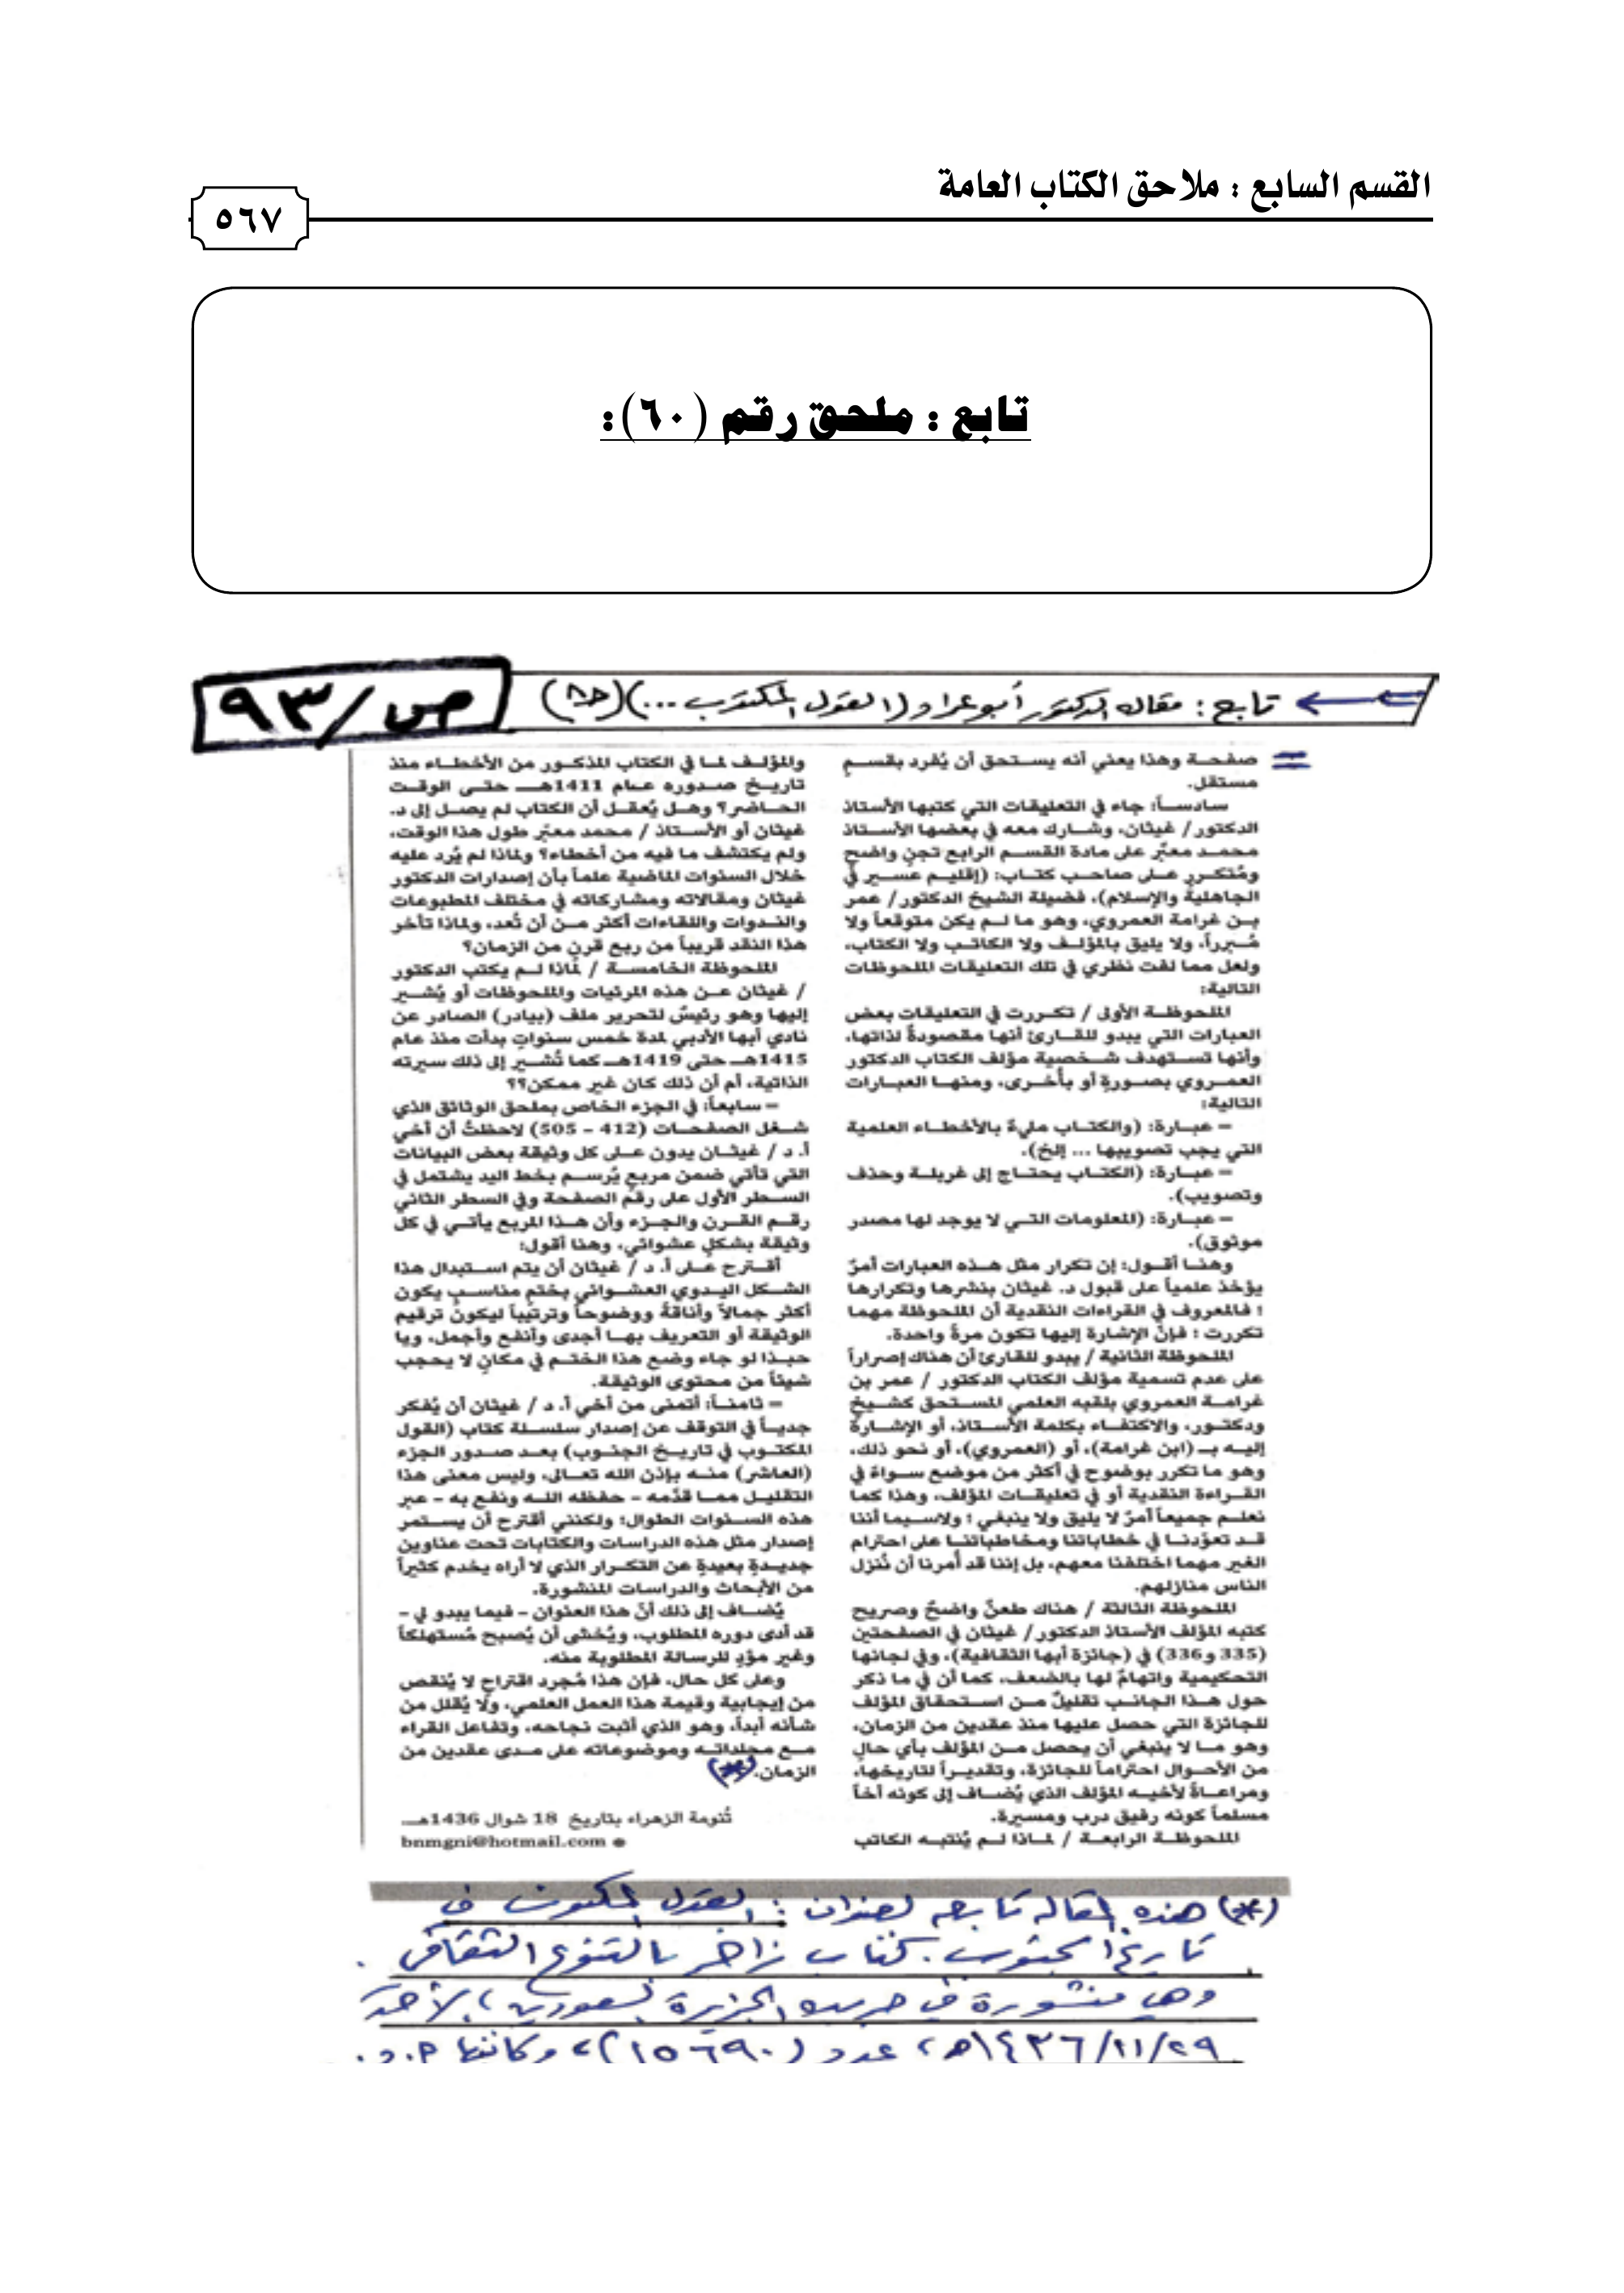 القسم السابع : ملاحق الكتاب العامة
٥٦٧
تابع : ملحق رقم (٦٠):
ص/٩٣
تابع : مقالة الدكتور أبو عراد (القول المكتوب ...) (ج٨)
= صفحة وهذا يعني أنه يستحق أن يُفرد بقسمٍ
مستقل.
سادساً: جاء في التعليقات التي كتبها الأستاذ
الدكتور/ غيثان، وشارك معه في بعضها الأستاذ
محمد معبّر على مادة القسم الرابع تجنٍ واضح
ومُتكرر على صاحب كتاب: (إقليم عسير في
الجاهلية والإسلام)، فضيلة الشيخ الدكتور/ عمر
بن غرامة العمروي، وهو ما لم يكن متوقعاً ولا
مُبرراً، ولا يليق بالمؤلف ولا الكاتب ولا الكتاب،
ولعل مما لفت نظري في تلك التعليقات الملحوظات
التالية:
الملحوظة الأولى / تكررت في التعليقات بعض
العبارات التي يبدو للقارئ أنها مقصودةً لذاتها،
وأنها تستهدف شخصية مؤلف الكتاب الدكتور
العمروي بصورةٍ أو بأخرى، ومنها العبارات
التالية:
– عبارة: (والكتاب مليءٌ بالأخطاء العلمية
التي يجب تصويبها ... إلخ).
– عبارة: (الكتاب يحتاج إلى غربلة وحذف
وتصويب).
– عبارة: (المعلومات التي لا يوجد لها مصدر
موثوق).
وهنا أقول: إن تكرار مثل هذه العبارات أمرٌ
يؤخذ علمياً على قبول د. غيثان بنشرها وتكرارها
؛ فالمعروف في القراءات النقدية أن الملحوظة مهما
تكررت ؛ فإنّ الإشارة إليها تكون مرةً واحدة.
الملحوظة الثانية / يبدو للقارئ أن هناك إصراراً
على عدم تسمية مؤلف الكتاب الدكتور / عمر بن
غرامة العمروي بلقبه العلمي المستحق كشيخٍ
ودكتور، والاكتفاء بكلمة الأستاذ، أو الإشارة
إليه بـ (ابن غرامة)، أو (العمروي)، أو نحو ذلك،
وهو ما تكرر بوضوح في أكثر من موضع سواءً في
القراءة النقدية أو في تعليقات المؤلف، وهذا كما
نعلم جميعاً أمرٌ لا يليق ولا ينبغي ؛ ولاسيما أننا
قد تعوّدنا في خطاباتنا ومخاطباتنا على احترام
الغير مهما اختلفنا معهم، بل إننا قد أُمرنا أن نُنزل
الناس منازلهم.
الملحوظة الثالثة / هناك طعنٌ واضحٌ وصريح
كتبه المؤلف الأستاذ الدكتور/ غيثان في الصفحتين
(335 و336) في (جائزة أبها الثقافية)، وفي لجانها
التحكيمية واتهامٌ لها بالضعف، كما أن في ما ذكر
حول هذا الجانب تقليلٌ من استحقاق المؤلف
للجائزة التي حصل عليها منذ عقدين من الزمان،
وهو ما لا ينبغي أن يحصل من المؤلف بأي حالٍ
من الأحوال احتراماً للجائزة، وتقديراً لتاريخها،
ومراعاةً لأخيه المؤلف الذي يُضاف إلى كونه أخاً
مسلماً كونه رفيق درب ومسيرة.
الملحوظة الرابعة / لماذا لم يُنتبه الكاتب
والمؤلف لما في الكتاب المذكور من الأخطاء منذ
تاريخ صدوره عام 1411هـ حتى الوقت
الحاضر؟ وهل يُعقل أن الكتاب لم يصل إلى د.
غيثان أو الأستاذ / محمد معبّر طول هذا الوقت،
ولم يكتشف ما فيه من أخطاء؟ ولماذا لم يُرد عليه
خلال السنوات الماضية علماً بأن إصدارات الدكتور
غيثان ومقالاته ومشاركاته في مختلف المطبوعات
والندوات واللقاءات أكثر من أن تُعد، ولماذا تأخر
هذا النقد قريباً من ربع قرنٍ من الزمان؟
الملحوظة الخامسة / لماذا لم يكتب الدكتور
/ غيثان عن هذه المرئيات والملحوظات أو يُشير
إليها وهو رئيسٌ لتحرير ملف (بيادر) الصادر عن
نادي أبها الأدبي لمدة خمس سنواتٍ بدأت منذ عام
1415هـ حتى 1419هـ كما تُشير إلى ذلك سيرته
الذاتية، أم أن ذلك كان غير ممكن؟؟
– سابعاً: في الجزء الخاص بملحق الوثائق الذي
شغل الصفحات (412 – 505) لاحظتُ أن أخي
أ. د / غيثان يدون على كل وثيقة بعض البيانات
التي تأتي ضمن مربعٍ يُرسم بخط اليد يشتمل في
السطر الأول على رقم الصفحة وفي السطر الثاني
رقم القرن والجزء وأن هذا المربع يأتي في كل
وثيقة بشكلٍ عشوائي، وهنا أقول:
أقترح على أ. د / غيثان أن يتم استبدال هذا
الشكل اليدوي العشوائي بختمٍ مناسبٍ يكون
أكثر جمالاً وأناقةً ووضوحاً وترتيباً ليكون ترقيم
الوثيقة أو التعريف بها أجدى وأنفع وأجمل، ويا
حبذا لو جاء وضع هذا الختم في مكانٍ لا يحجب
شيئاً من محتوى الوثيقة.
– ثامناً: أتمنى من أخي أ. د / غيثان أن يُفكر
جدياً في التوقف عن إصدار سلسلة كتاب (القول
المكتوب في تاريخ الجنوب) بعد صدور الجزء
(العاشر) منه بإذن الله تعالى، وليس معنى هذا
التقليل مما قدّمه – حفظه الله ونفع به – عبر
هذه السنوات الطوال؛ ولكنني أقترح أن يستمر
إصدار مثل هذه الدراسات والكتابات تحت عناوين
جديدةٍ بعيدةٍ عن التكرار الذي لا أراه يخدم كثيراً
من الأبحاث والدراسات المنشورة.
يُضاف إلى ذلك أنّ هذا العنوان – فيما يبدو لي –
قد أدى دوره المطلوب، ويُخشى أن يُصبح مُستهلكاً
وغير مؤدٍ للرسالة المطلوبة منه.
وعلى كل حال، فإن هذا مُجرد اقتراحٍ لا يُنقص
من إيجابية وقيمة هذا العمل العلمي، ولا يُقلل من
شأنه أبداً، وهو الذي أثبت نجاحه، وتفاعل القراء
مع مجلداته وموضوعاته على مدى عقدين من
الزمان. (*)
تُنومة الزهراء بتاريخ 18 شوال 1436هـ
bnmgni@hotmail.com ●
(*) هذه المقالة تابعه لعنوان : القول المكتوب في
تاريخ الجنوب . كتاب زاخر بالتنوع الثقافي .
وهي منشورة في جريدة الجزيرة السعودية ، الأحد
٢٩/١١/١٤٣٦هـ ، عدد (١٥٦٩٠) ،